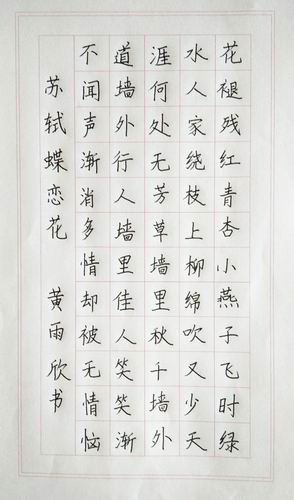 花褪残红青杏小燕子飞时绿
水人家绕枝上柳绵吹又少天
涯何处无芳草墙里秋千墙外
道墙外行人墙里佳人笑笑渐
不闻声渐消多情却被无情恼
苏轼蝶恋花 黄雨欣书